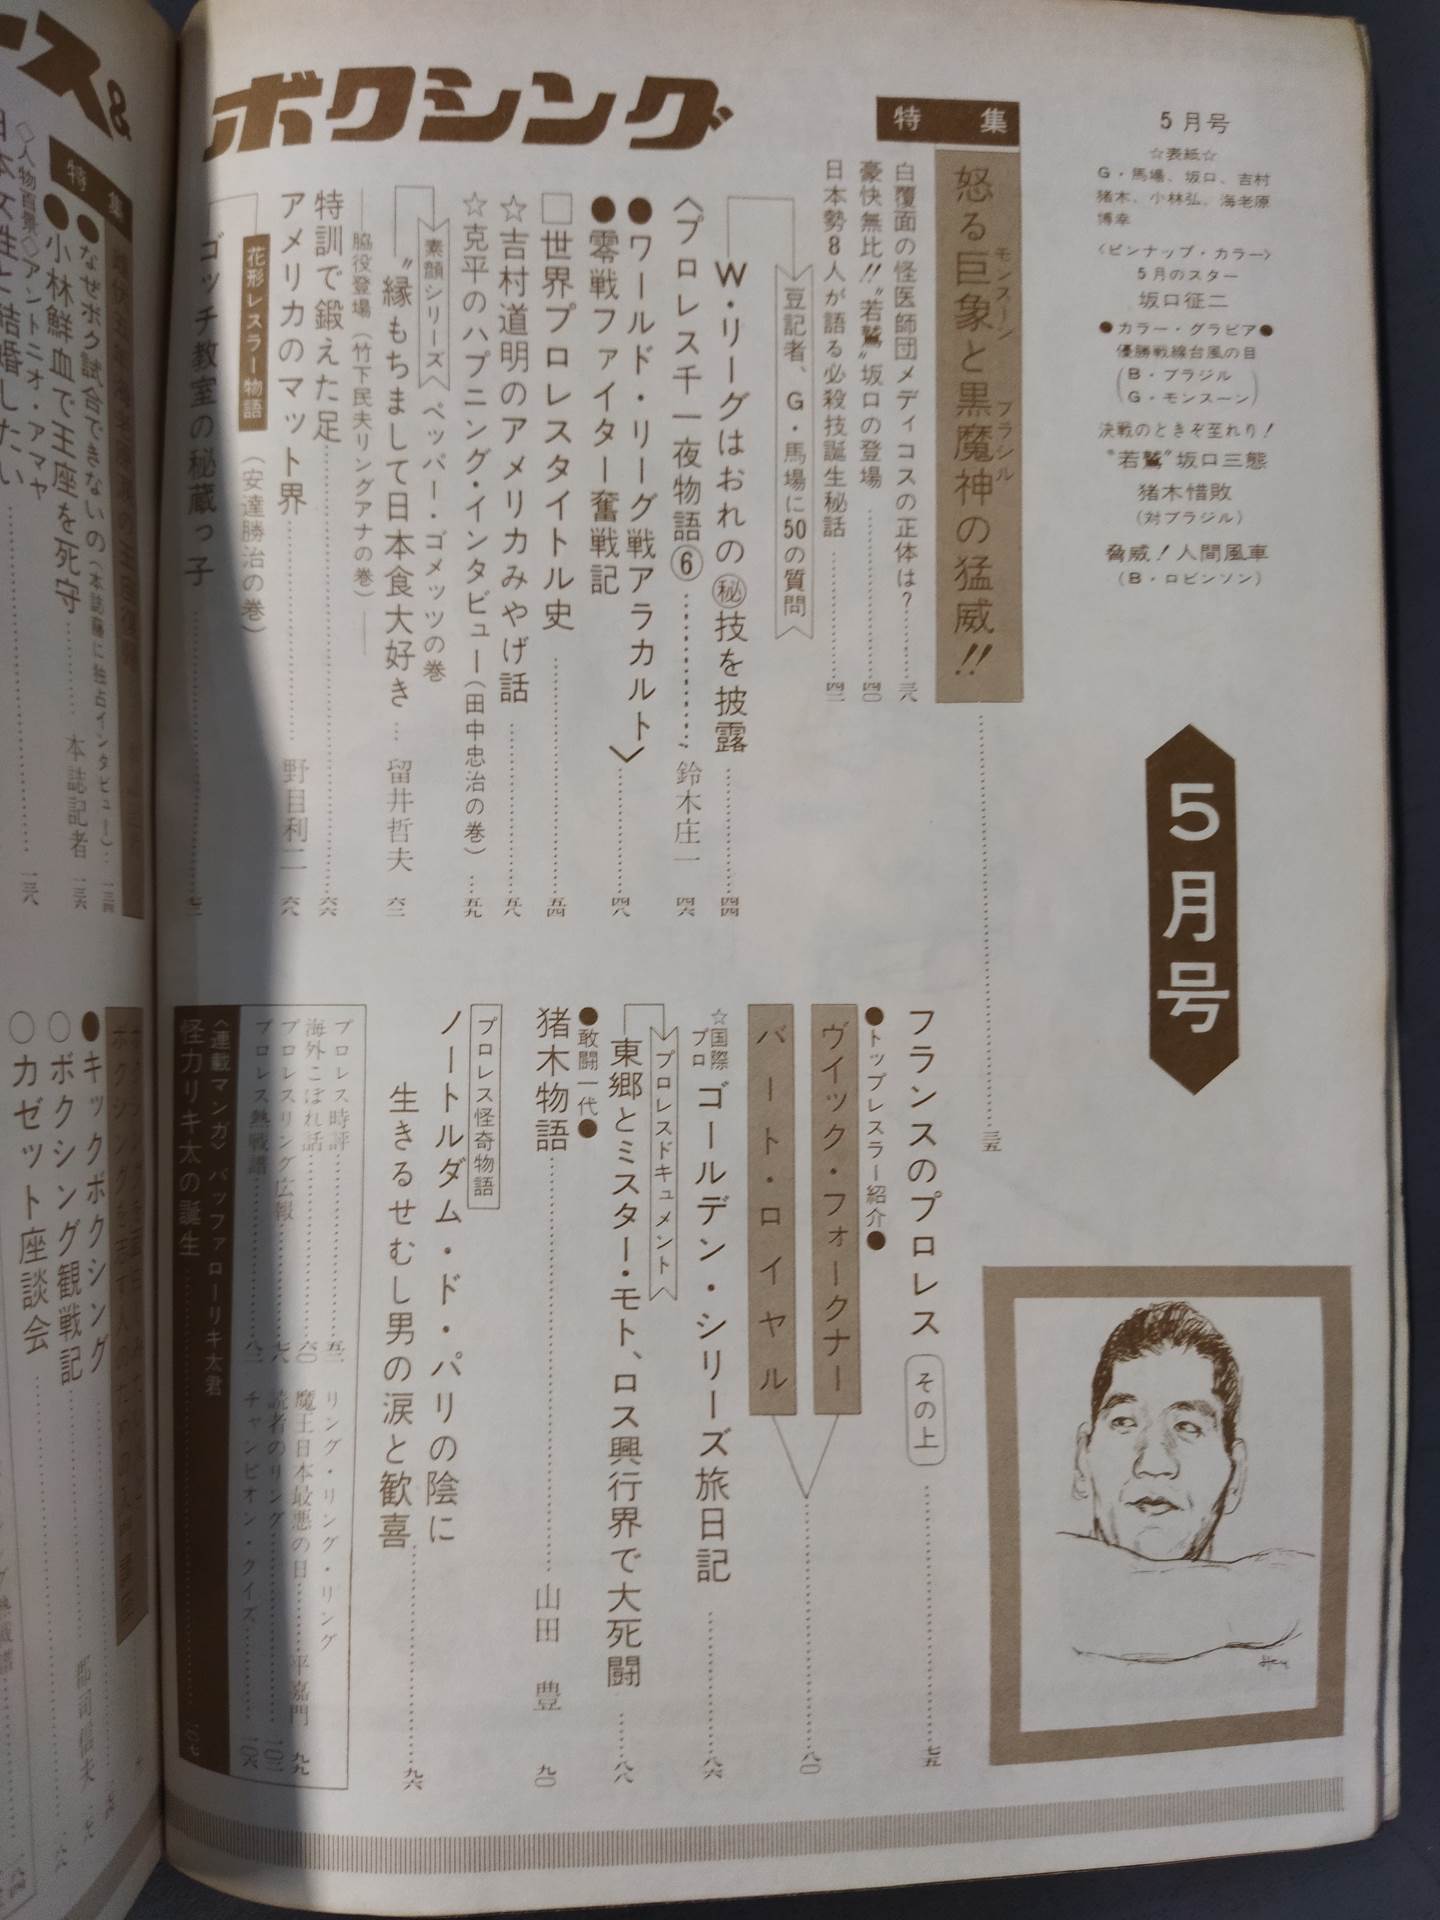 ボクシング
5月号
☆表紙☆
G・馬場、坂口、吉村
猪木、小林弘、海老原
博幸
〈ピンナップ・カラー〉
5月のスター
坂口征二
●カラー・グラビア●
優勝戦線台風の目
(B・ブラジル
G・モンスーン)
決戦のときぞ至れり！
〝若鷲〟坂口三態
猪木惜敗
(対ブラジル)
脅威！人間風車
(B・ロビンソン)
5月号
特集
怒る巨象と黒魔神の猛威!!
モンスーン
ブラジル
三五
白覆面の怪医師団メディコスの正体は？
三八
豪快無比!!〝若鷲〟坂口の登場
四〇
日本勢8人が語る必殺技誕生秘話
四二
豆記者、G・馬場に50の質問
W・リーグはおれの㊙技を披露
四四
〈プロレス千一夜物語⑥
鈴木庄一
四六
●ワールド・リーグ戦アラカルト〉
●零戦ファイター奮戦記
四八
□世界プロレスタイトル史
五四
☆吉村道明のアメリカみやげ話
五八
☆克平のハプニング・インタビュー(田中忠治の巻)
五九
素顔シリーズ
ペッパー・ゴメッツの巻
〝縁もちまして日本食大好き
留井哲夫
六二
脇役登場(竹下民夫リングアナの巻)
特訓で鍛えた足
六六
アメリカのマット界
野目利二
六八
花形レスラー物語
(安達勝治の巻)
ゴッチ教室の秘蔵っ子
フランスのプロレス
その上
七五
●トップレスラー紹介●
ヴィック・フォークナー
バート・ロイヤル
八〇
☆国際プロ
ゴールデン・シリーズ旅日記
八六
プロレスドキュメント
東郷とミスター・モト、ロス興行界で大死闘
八八
●敢闘一代●
猪木物語
山田豊
九〇
プロレス怪奇物語
ノートルダム・ド・パリの陰に
生きるせむし男の涙と歓喜
九六
プロレス時評
五二
海外こぼれ話
六〇
プロレスリング広報
七八
プロレス熱戦譜
八二
リング・リング・リング
魔王日本最悪の日
平嘉門
九九
読者のリング
一〇二
チャンピオン・クイズ
一〇六
〈連載マンガ〉バッファローリキ太君
怪力リキ太の誕生
一〇七
ース&
特集
●なぜボク試合できないの(本誌藤に独占インタビュー)
一三四
●小林鮮血で王座を死守
本誌記者
一三六
◇人物百景◇アントニオ・アマヤ
日本女性と結婚したい
一三八
●キックボクシング
○ボクシング観戦記
郡司信夫
○カゼット座談会